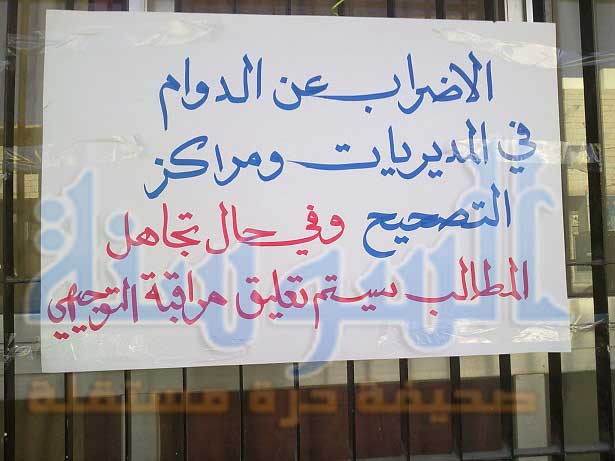 الاضراب عن الدوام
في المديريات ومراكز
التصحيح وفي حال تجاهل
المطالب سيتم تعليق مراقبة التوجيهي
السوسنة
صحيفة حرة مستقلة